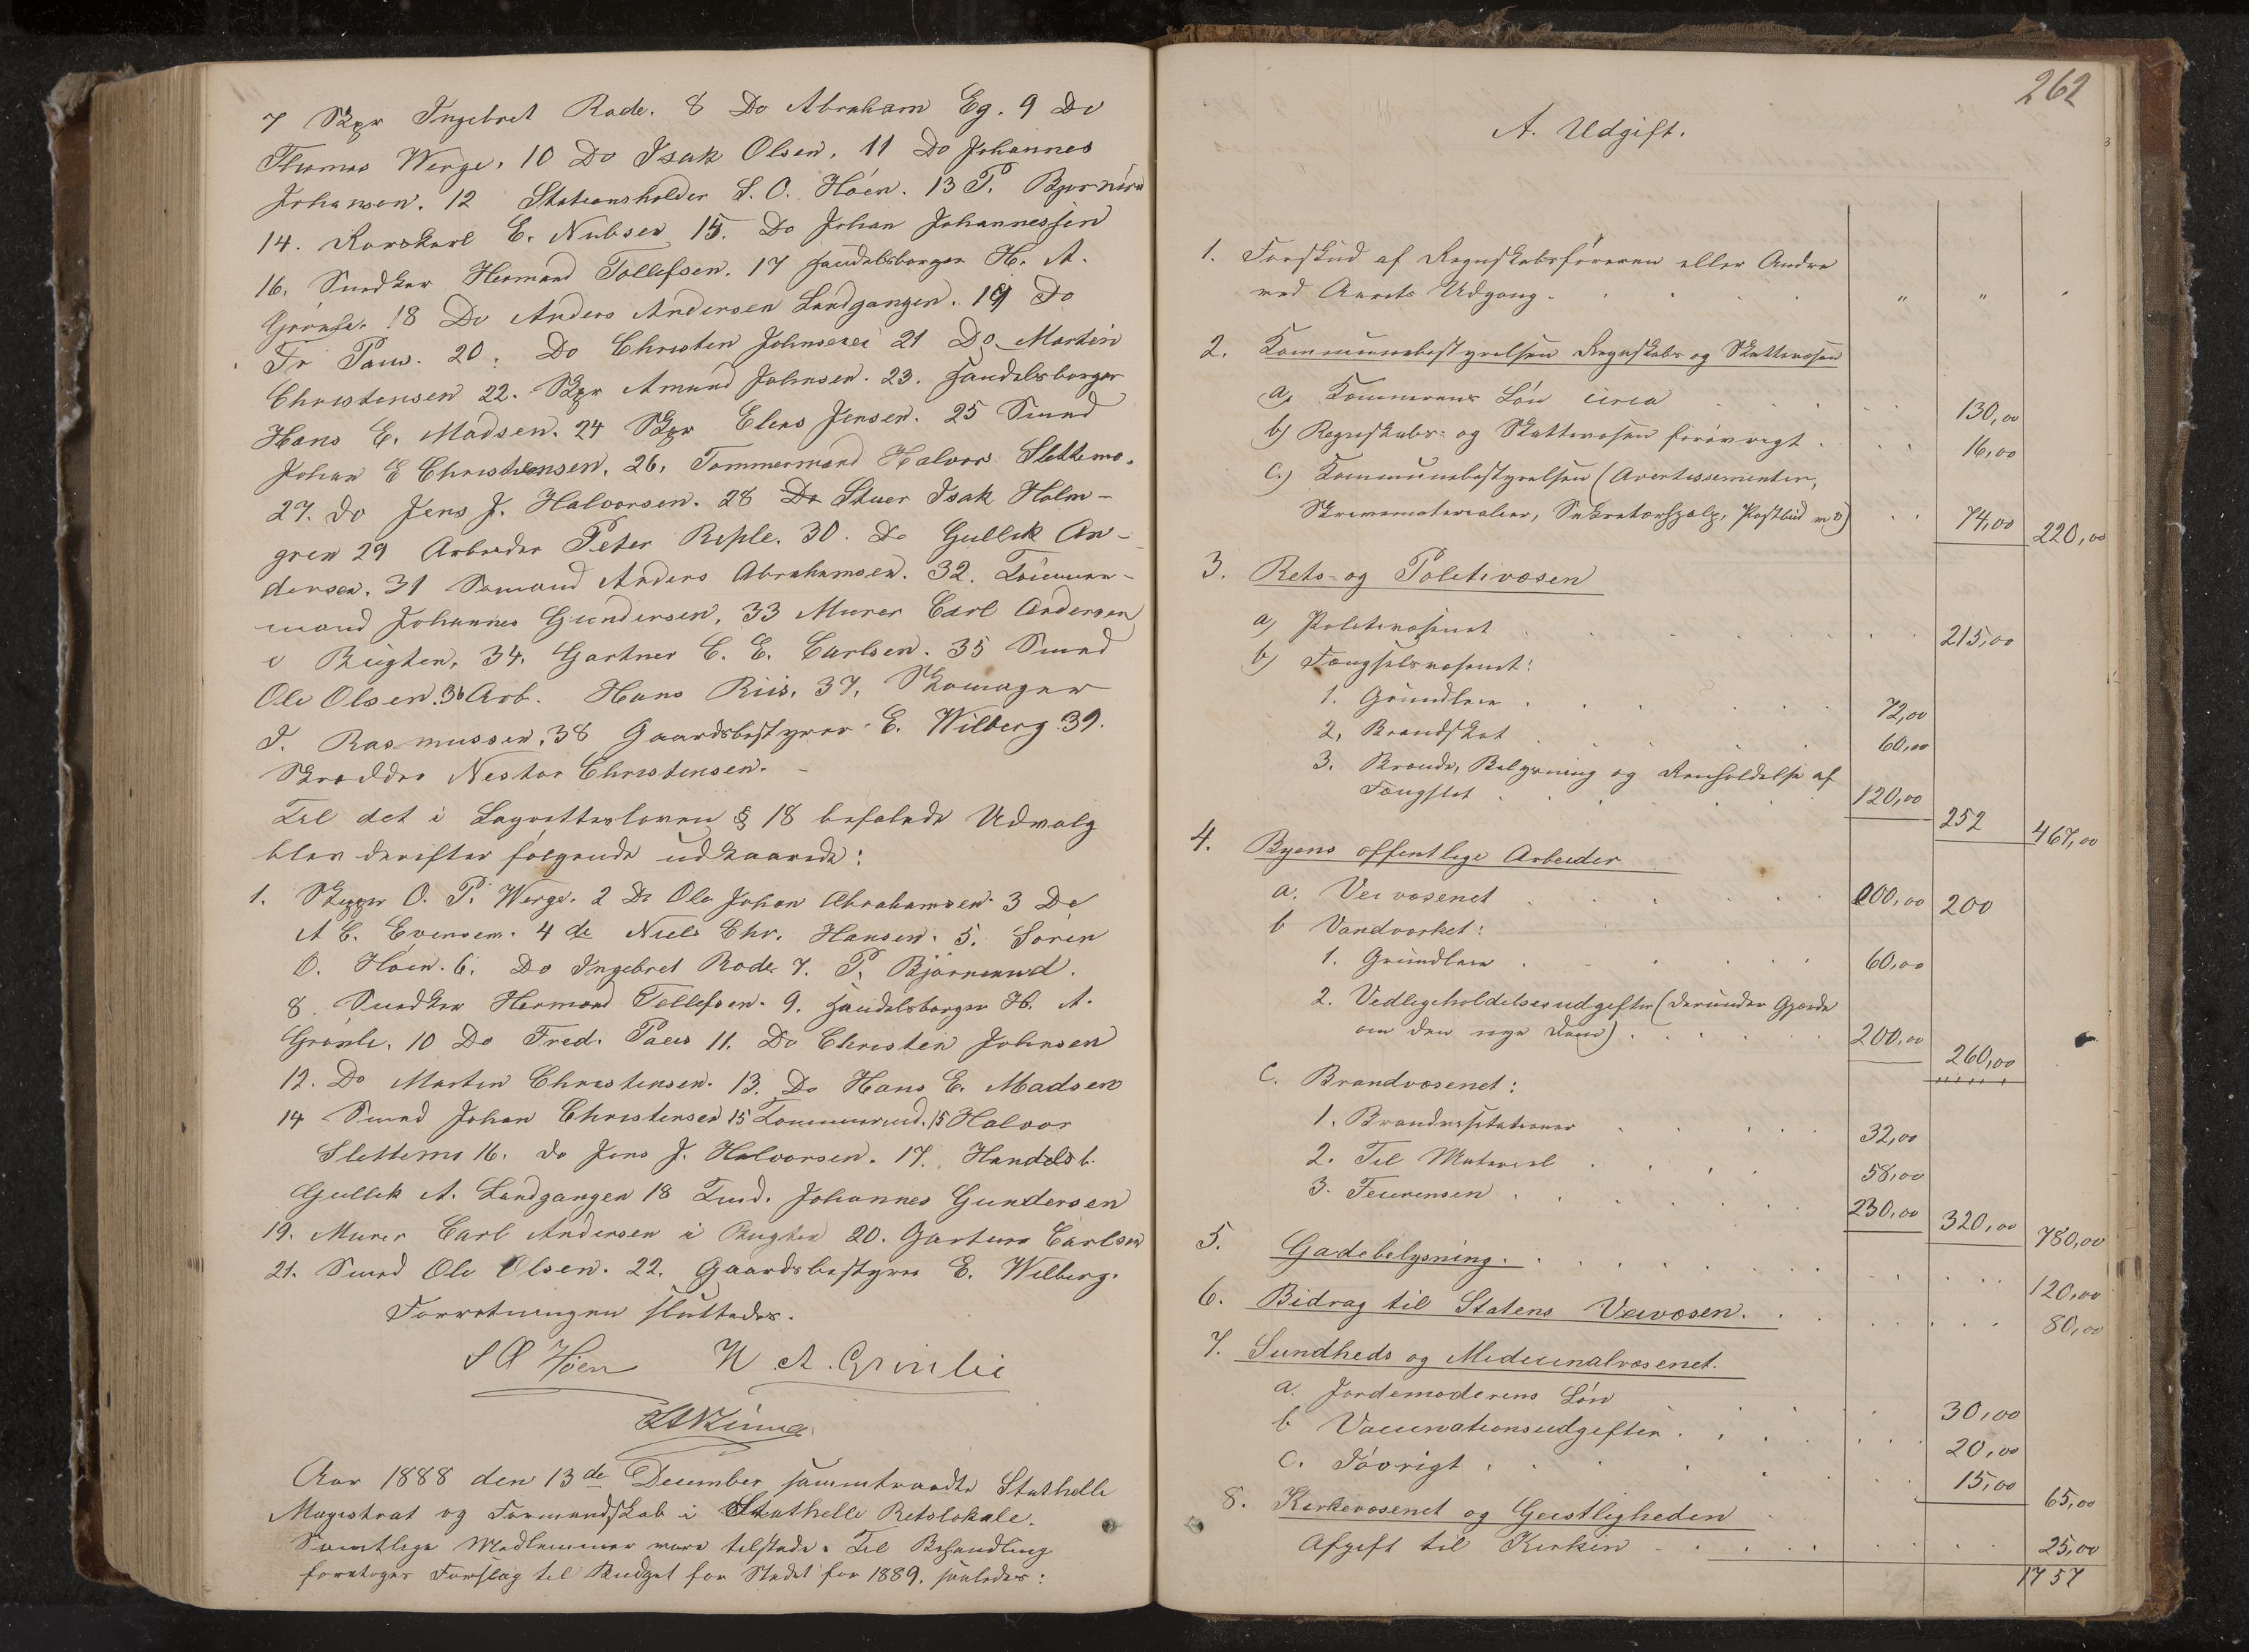 7 Skpr Ingebret Rode. 8 Do Abraham Eg. 9 Do
Thomas Werge, 10 Do Isak Olsen, 11 Do Johannes
Johansen. 12 Stationsholder S. O. Höen. 13 P.
14. E. Nubsen 15. Do Johan Johannessen
16. Snedker Hermand Tollefsen. 17 Handelsborger H. A.
Grönli. 18 Do Anders Andersen Landgangen. 19 Do
Fr Paus. 20. Do Christen Johnsen 21 Do Martin
Christensen 22. Skpr Amund Johnsen. 23. Handelsborger
Hans E. Madsen. 24 Skpr Elias Jensen. 25 Smed
Johan E Christensen. 26. Tømmermand Halvor Slettemo.
27. do Jens J. Halvorsen. 28 Do Stuer Isak Holm-
gren 29 Arbeider Peter Reple. 30. Do Gullik An-
dersen. 31 Sømand Anders Abrahamsen. 32. Tömmer-
mand Johannes Gundersen, 33 Murer Carl Andersen
i Bugten, 34. Gartner C. E. Carlsen. 35 Smed
Ole Olsen. 36 Arb. Hans Riis. 37. Skomager
J. Rasmussen. 38 Gaardsbestyrer E. Wilberg. 39.
Skrædder Nestor Christensen. -
Til det i Lagrettesloven § 18 befalede Udvalg
blev derefter følgende udkaarede:
1. Skipper O. P. Werge. 2 Do Ole Johan Abrahamsen. 3 Do
A C. Evensen. 4 do Niels Chr. Hansen. 5. Sören
O. Höen. 6. Do Ingebret Rode 7. P. Björnsund.
8. Snedker Hermand Tollefsen. 9. Handelsborger H. A.
Grönli. 10 Do Fred. Paus 11. Do Christen Johnsen
12. Do Martin Christensen. 13. Do Hans E. Madsen
14 Smed Johan Christensen 15 Tømmermd. 15 Halvor
Slettemo 16. do Jens J. Halvorsen. 17. Handelsb.
Gullik A. Landgangen 18 Tmd. Johannes Gundersen
19. Murer Carl Andersen i Bugten 20. Gartner Carlsen
21. Smed Ole Olsen. 22. Gaardsbestyrer E. Wilberg.
Forretningen sluttedes.
S O Höen H. A. Grönlie
Aar 1888 den 13de December sammtraadte Stathelle
Magistrat og Formandskab i Stathelle Retslokale.
Samtlige Medlemmer vare tilstede. Til Behandling
foretoges Forslag til Budget for Stedet for 1889, saaledes:
262
A. Udgift.
1. Forskud af Regnskabsføreren eller Andre
ved Aarets Udgang . . . . " "
2. Kommunebestyrelsen Regnskabs og Skattevæsen
a, Kæmnerens Lön circa . . . 130,00
b) Regnskabs- og Skattevæsen forövrigt . . . 16,00
c.) Kommunebestyrelsen (Avertissementer,
Skrivematerialier, Sekretærhjælp, Postbud m v) . . 74,00 220,00
3. Rets- og Politivæsen
a) Politivæsenet . . . . 215,00
b) Fængselsvæsenet:
1. Grundleie . . . . 72,00
2. Brandskat . . . . 60,00
3. Brænde, Belysning og Renholdelse af
Fængslet . . . . 120,00 252 467,00
4. Byens offentlige Arbeider
a. Veivæsenet . . . . 200,00 200
b Vandværket:
1. Grundleie . . . . 60,00
2. Vedligeholdelsesudgifter (derunder Gjærde
om den nye Dam) . . . . 200,00 260,00
c. Brandvæsenet:
1. Brandvisitationer . . . . 32,00
2. Til Materiel . . . . 58,00
3. Feierensen . . . . 230,00 320,00 780,00
5. Gadebelysning . . . . 120,00
6. Bidrag til Statens Veivæsen . . . . 80,00
7. Sundheds og Medicinalvæsenet.
a. Jordemoderens Lön . . . . 30,00
b Vaccinationsudgifter . . . . 20,00
c. Iövrigt . . . . 15,00 65,00
8. Kirkevæsenet og Geistligheden
Afgift til Kirken . . . . 25,00
1757